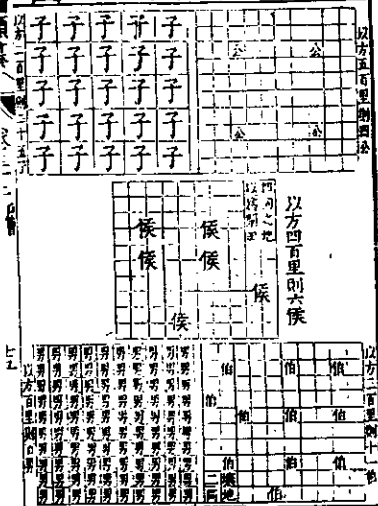 以方五百里則四公
公 公
公 公
以方二百里則二十五子
子 子 子 子 子
子 子 子 子 子
子 子 子 子 子
子 子 子 子 子
子 子 子 子 子
以方四百里則六侯
四同之地
侯 侯
侯 侯
侯
侯
里則十一伯
伯 伯 伯
伯
伯 伯 伯
伯 伯 伯
伯
地
以方百里則百男
男 男 男 男 男 男 男 男 男 男
男 男 男 男 男 男 男 男 男 男
男 男 男 男 男 男 男 男 男 男
男 男 男 男 男 男 男 男 男 男
男 男 男 男 男 男 男 男 男 男
男 男 男 男 男 男 男 男 男 男
男 男 男 男 男 男 男 男 男 男
男 男 男 男 男 男 男 男 男 男
男 男 男 男 男 男 男 男 男 男
男 男 男 男 男 男 男 男 男 男